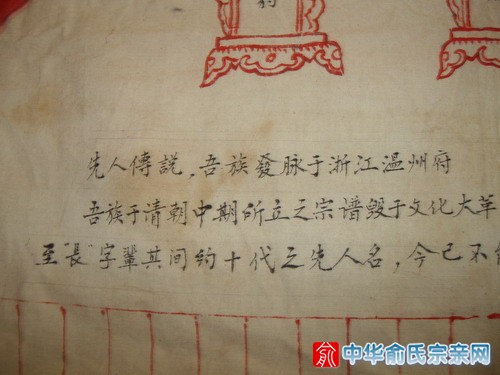 先人傳説，吾族發脉于浙江温州府
吾族于清朝中期所立之宗谱毁于文化大革
至"長"字輩其间约十代之先人名，今已不
俞 中华俞氏宗亲网